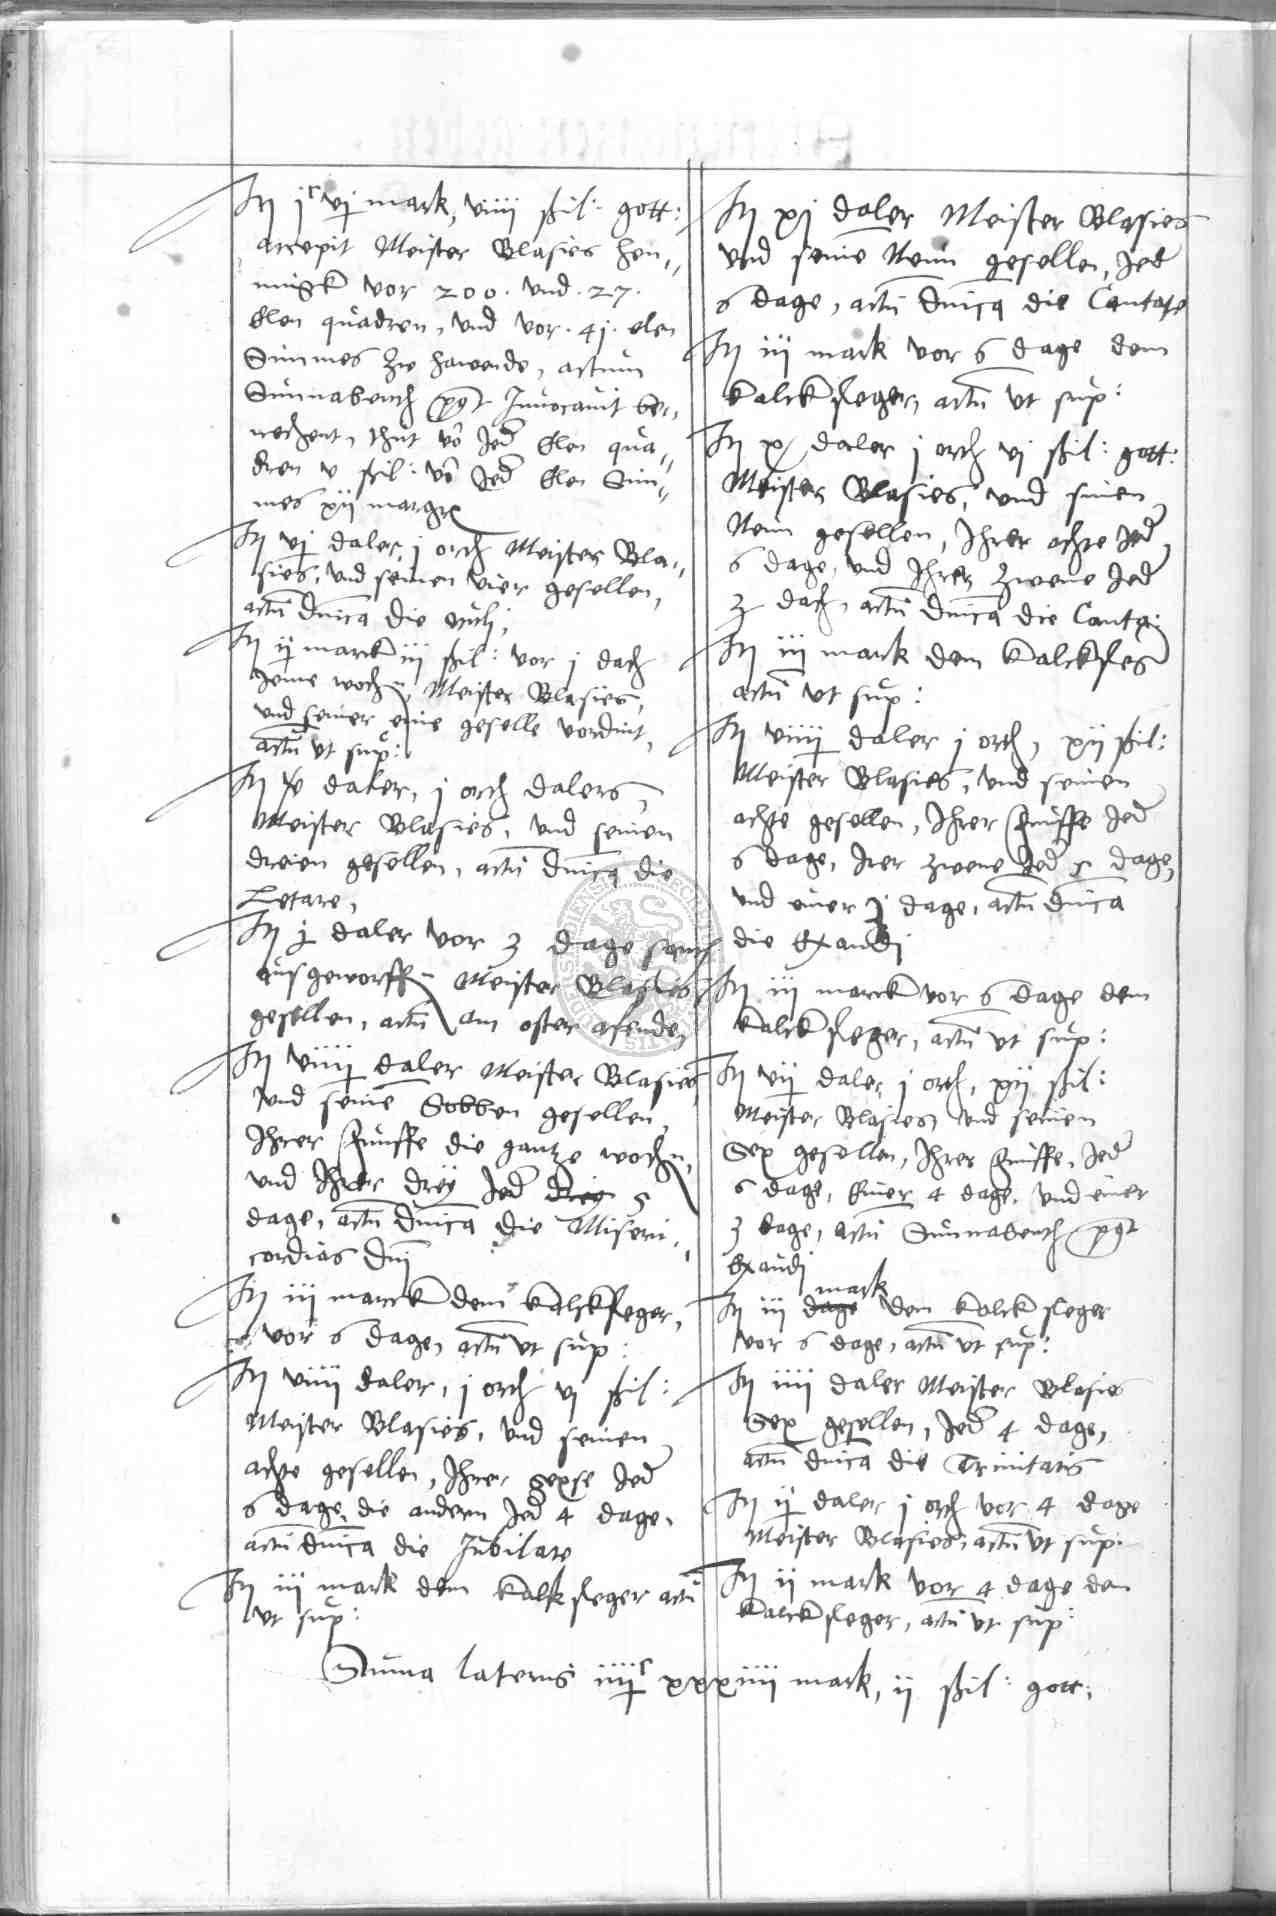 It j^c vj mark, viiij ßil: gott:
accepit Meister Blasies Hen„
ningk vor 200. vnd. 27.
Elen quadren, vnd vor. 41. elen
Simmes zw hawende, actum
Sunnabench post Invocavit be„
rechent, thut vor Jed Elen qua„
dren v ßil: vor Jed Elen Sim„
mes xij margr
It vj daler, j orch Meister Bla„
sies, vnd seinen vier gesellen,
actu dnica die oculj,
It ij marck iij ßil: vor j dach
Jenne woch, Meister Blasies,
vnd seiner eine geselle vordint,
actu vt sup:
It v daler, j orch dalers,
Meister Blasies, vnd seinen
dreien gesellen, actu dnica die
Letare,
It j daler vor 3 dage
ausgeworffn Meister Blasies
gesellen, actu am oster afende,
It viiij daler Meister Blasies
vnd seine Sobben gesellen,
Ihrer funffe die gantze wochn,
vnd Ihrer drey Jed drey 5
dage, actu dnica die Miseri„
cordias dnj
It iij marck dem kalckfleger,
vor 6 dage, actu vt sup:
It viiij daler, j orch vj ßil:
Meister Blasies, vnd seinen
achte gesellen, Ihrer sexse Jed
6 dage, die andern Jed 4 dage,
actu dnica die Jubilate
It iij mark dem kalkfleger actu
vt sup:
It xj daler Meister Blasies
vnd seine Nein gesellen, Jed
6 dage, actu dnica die Cantate
It iij mark vor 6 dage dem
kalckfleger, actu vt sup:
It x daler j orch vj ßil: gott:
Meister Blasies, vnd sinen
Nein gesellen, Ihrer achte Jed
6 dage, vnd Ihrer zwene Jed
3 dach, actu dnica die Canta:
It iij mark dem kalckfleg
actu vt sup:
It viiij daler j orch, xij ßil:
Meister Blasies, vnd seinen
achte gesellen, Ihrer funffe Jed
6 dage, Irer zwene Jed 5 dage,
vnd einer dage, actu dnica
die Exaudj
It iij marck vor 6 dage dem
kalckfleger, actu vt sup:
It vij daler j orch, xij ßil:
Meister Blasies vnd seinen
Sex gesellen, Ihrer funffe, Jed
6 dage, Einer 4 dage, vnd einer
3 dage, actu Sunnabenth post
Exaudj
It iij dage mark dem kalckfleger
vor 6 dage, actu vt sup:
It iiij daler Meister Blasies
Sex gesellen, Jed 4 dage,
actu dnica die Trinitatis
It ij daler j orch vor 4 dage
Meister Blasies, actu vt sup:
It ij mark vor 4 dage dem
kalckfleger, actu vt sup:
Suma lateris iiij^c xxxiiij mark, ij ßil: gott: